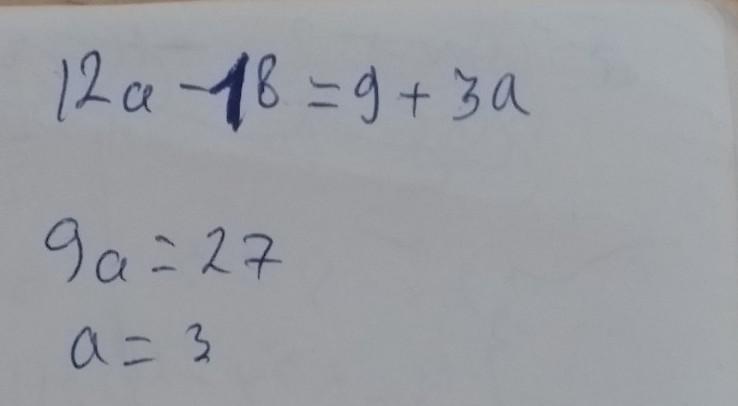 12a - 18 = 9 + 3a
9a = 27
a = 3